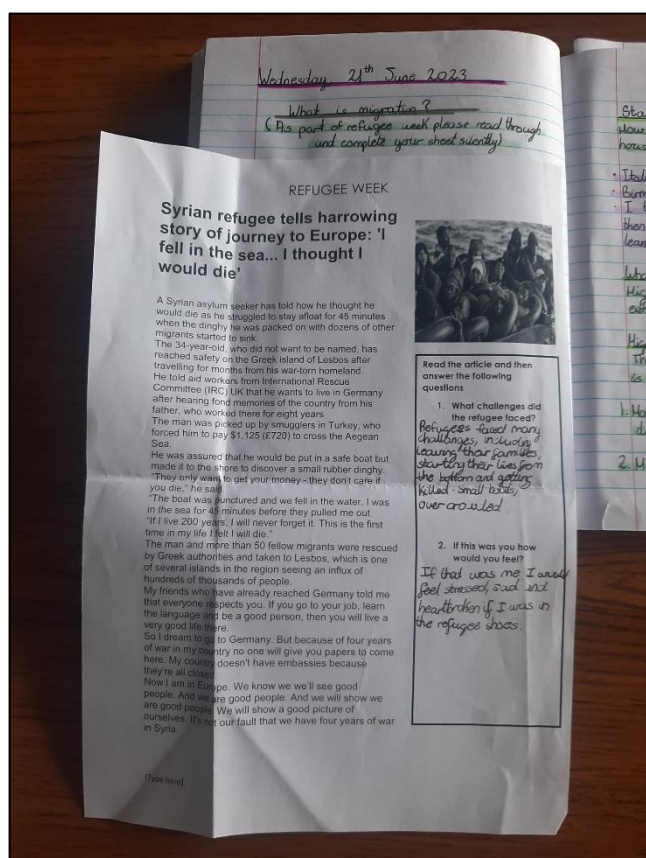 Wednesday, 21th June 2023
What is migration?
(As part of refugee week please read through
and complete your sheet silently)
REFUGEE WEEK
Syrian refugee tells harrowing
story of journey to Europe: 'I
fell in the sea... I thought I
would die'
A Syrian asylum seeker has told how he thought he
would die as he struggled to stay afloat for 45 minutes
when the dinghy he was packed on with dozens of other
migrants started to sink.
The 34-year-old, who did not want to be named, has
reached safety on the Greek island of Lesbos after
travelling for months from his war-torn homeland.
He told aid workers from International Rescue
Committee (IRC) UK that he wants to live in Germany
after hearing fond memories of the country from his
father, who worked there for eight years
The man was picked up by smugglers in Turkey, who
forced him to pay $1,125 (£720) to cross the Aegean
Sea.
He was assured that he would be put in a safe boat but
made it to the shore to discover a small rubber dinghy.
"They only want to get your money - they don't care if
you die," he said
"The boat was punctured and we fell in the water. I was
in the sea for 45 minutes before they pulled me out.
"If I live 200 years, I will never forget it. This is the first
time in my life I felt I will die."
The man and more than 50 fellow migrants were rescued
by Greek authorities and taken to Lesbos, which is one
of several islands in the region seeing an influx of
hundreds of thousands of people.
My friends who have already reached Germany told me
that everyone respects you. If you go to your job, learn
the language and be a good person, then you will live a
very good life there.
So I dream to go to Germany. But because of four years
of war in my country no one will give you papers to come
here. My country doesn't have embassies because
they're all closed
Now I am in Europe. We know we we'll see good
people. And we are good people. And we will show we
are good people. We will show a good picture of
ourselves. It's not our fault that we have four years of war
in Syria.
[Type here]
Read the article and then
answer the following
questions
1. What challenges did
the refugee faced?
Refugees faced many
challenges, including
leaving their families,
starting their lives from
the bottom and getting
killed. small boats,
overcrowded.
2. If this was you how
would you feel?
If that was me I would
feel stressed, sad and
heartbroken if I was in
the refugee shoes.
hous
then
lear
is
1.
2. M